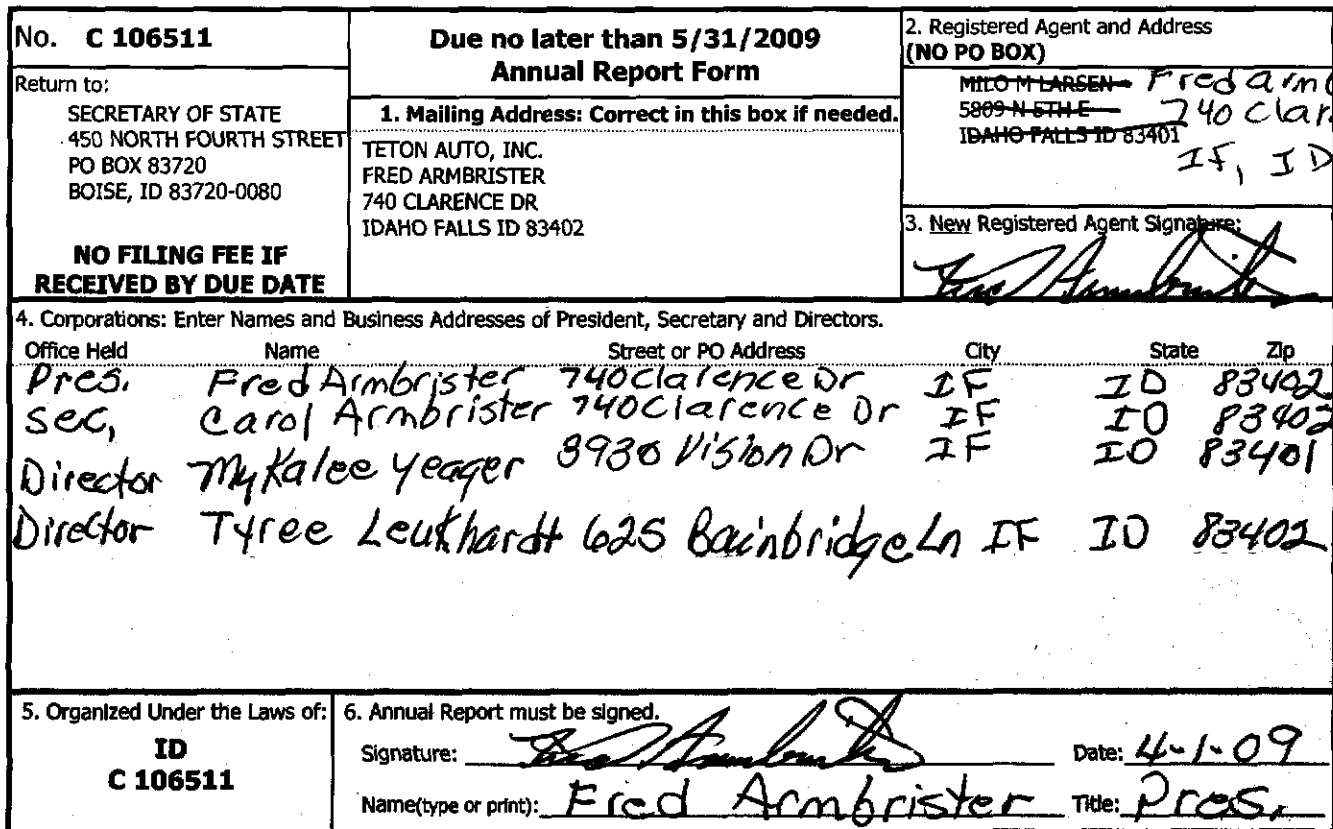 No. C 106511
Return to:
SECRETARY OF STATE
450 NORTH FOURTH STREET
PO BOX 83720
BOISE, ID 83720-0080
NO FILING FEE IF
RECEIVED BY DUE DATE
Due no later than 5/31/2009
Annual Report Form
1. Mailing Address: Correct in this box if needed.
TETON AUTO, INC.
FRED ARMBRISTER
740 CLARENCE DR
IDAHO FALLS ID 83402
2. Registered Agent and Address
(NO PO BOX)
MILO M LARSEN Fred Armb
5809 N 5TH E 740 Clar
IDAHO FALLS ID 83401
IF, ID
3. New Registered Agent Signature:
Fred Armbrister
4. Corporations: Enter Names and Business Addresses of President, Secretary and Directors.
Office Held Name Street or PO Address City State Zip
Pres. Fred Armbrister 740 Clarence Dr IF ID 83402
Sec, Carol Armbrister 740 Clarence Dr IF ID 83402
Director Mykalee Yeager 3930 Vision Dr IF ID 83401
Director Tyree Leukhardt 625 Bainbridge Ln IF ID 83402
5. Organized Under the Laws of:
ID
C 106511
6. Annual Report must be signed.
Signature: Fred Armbrister Date: 4-1-09
Name(type or print): Fred Armbrister Title: Pres.